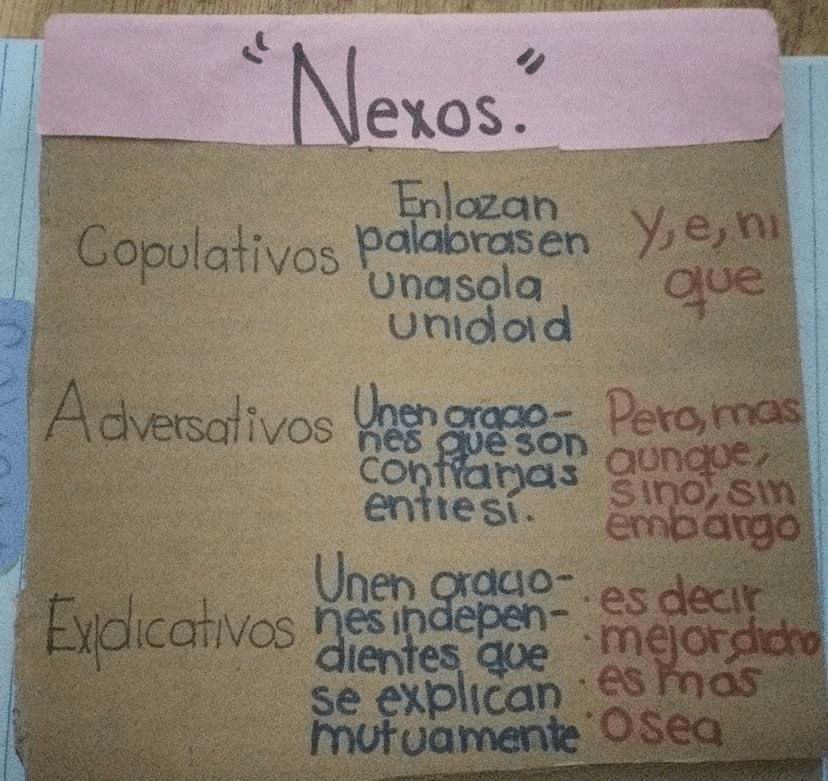 "Nexos."
Copulativos
Enlazan
palabras en
una sola
unidad
Y, e, ni
que
Adversativos
Unen oracio-
nes que son
contrarias
entre sí.
Pero, mas
aunque,
sino, sin
embargo
Explicativos
Unen oracio-
nes indepen-
dientes que
se explican
mutuamente
· es decir
· mejor dicho
· es más
· O sea